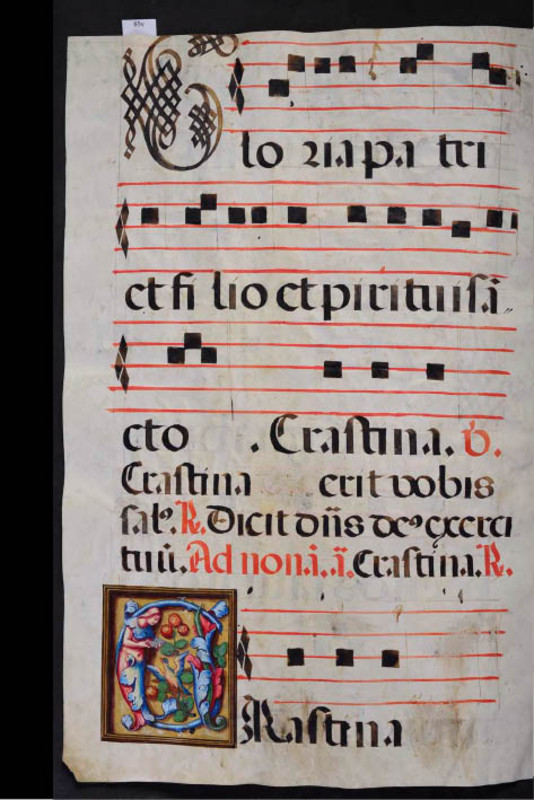 Glo ria pa tri
et fi lio et spiritui sã
cto . Crastina. ℣.
Crastina erit vobis
sal⁹. ℟. Dicit dñs de⁹ exerci
tuũ. Ad nonã. ã. Crastina. ℟.
CRastina